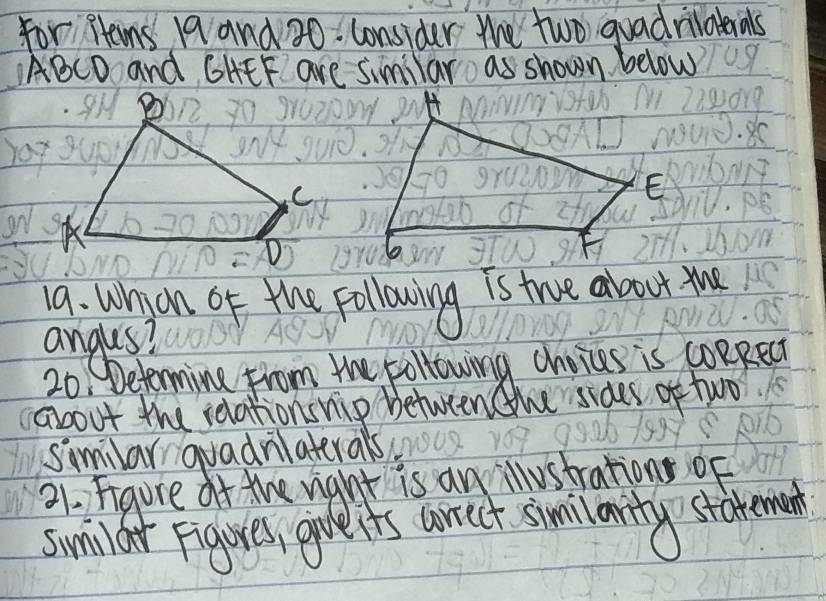 For items 19 and 20. Consider the two quadrilaterals
ABCD and GHEF are similar as shown below
B
H
C
E
A
D
G
F
19. Which of the following is true about the
angles?
20. Determine from the following choices is CORRECT
about the relationship between the sides of two
similar quadrilaterals.
21. Figure at the right is an illustrations of
similar figures, give its correct similarity statement.